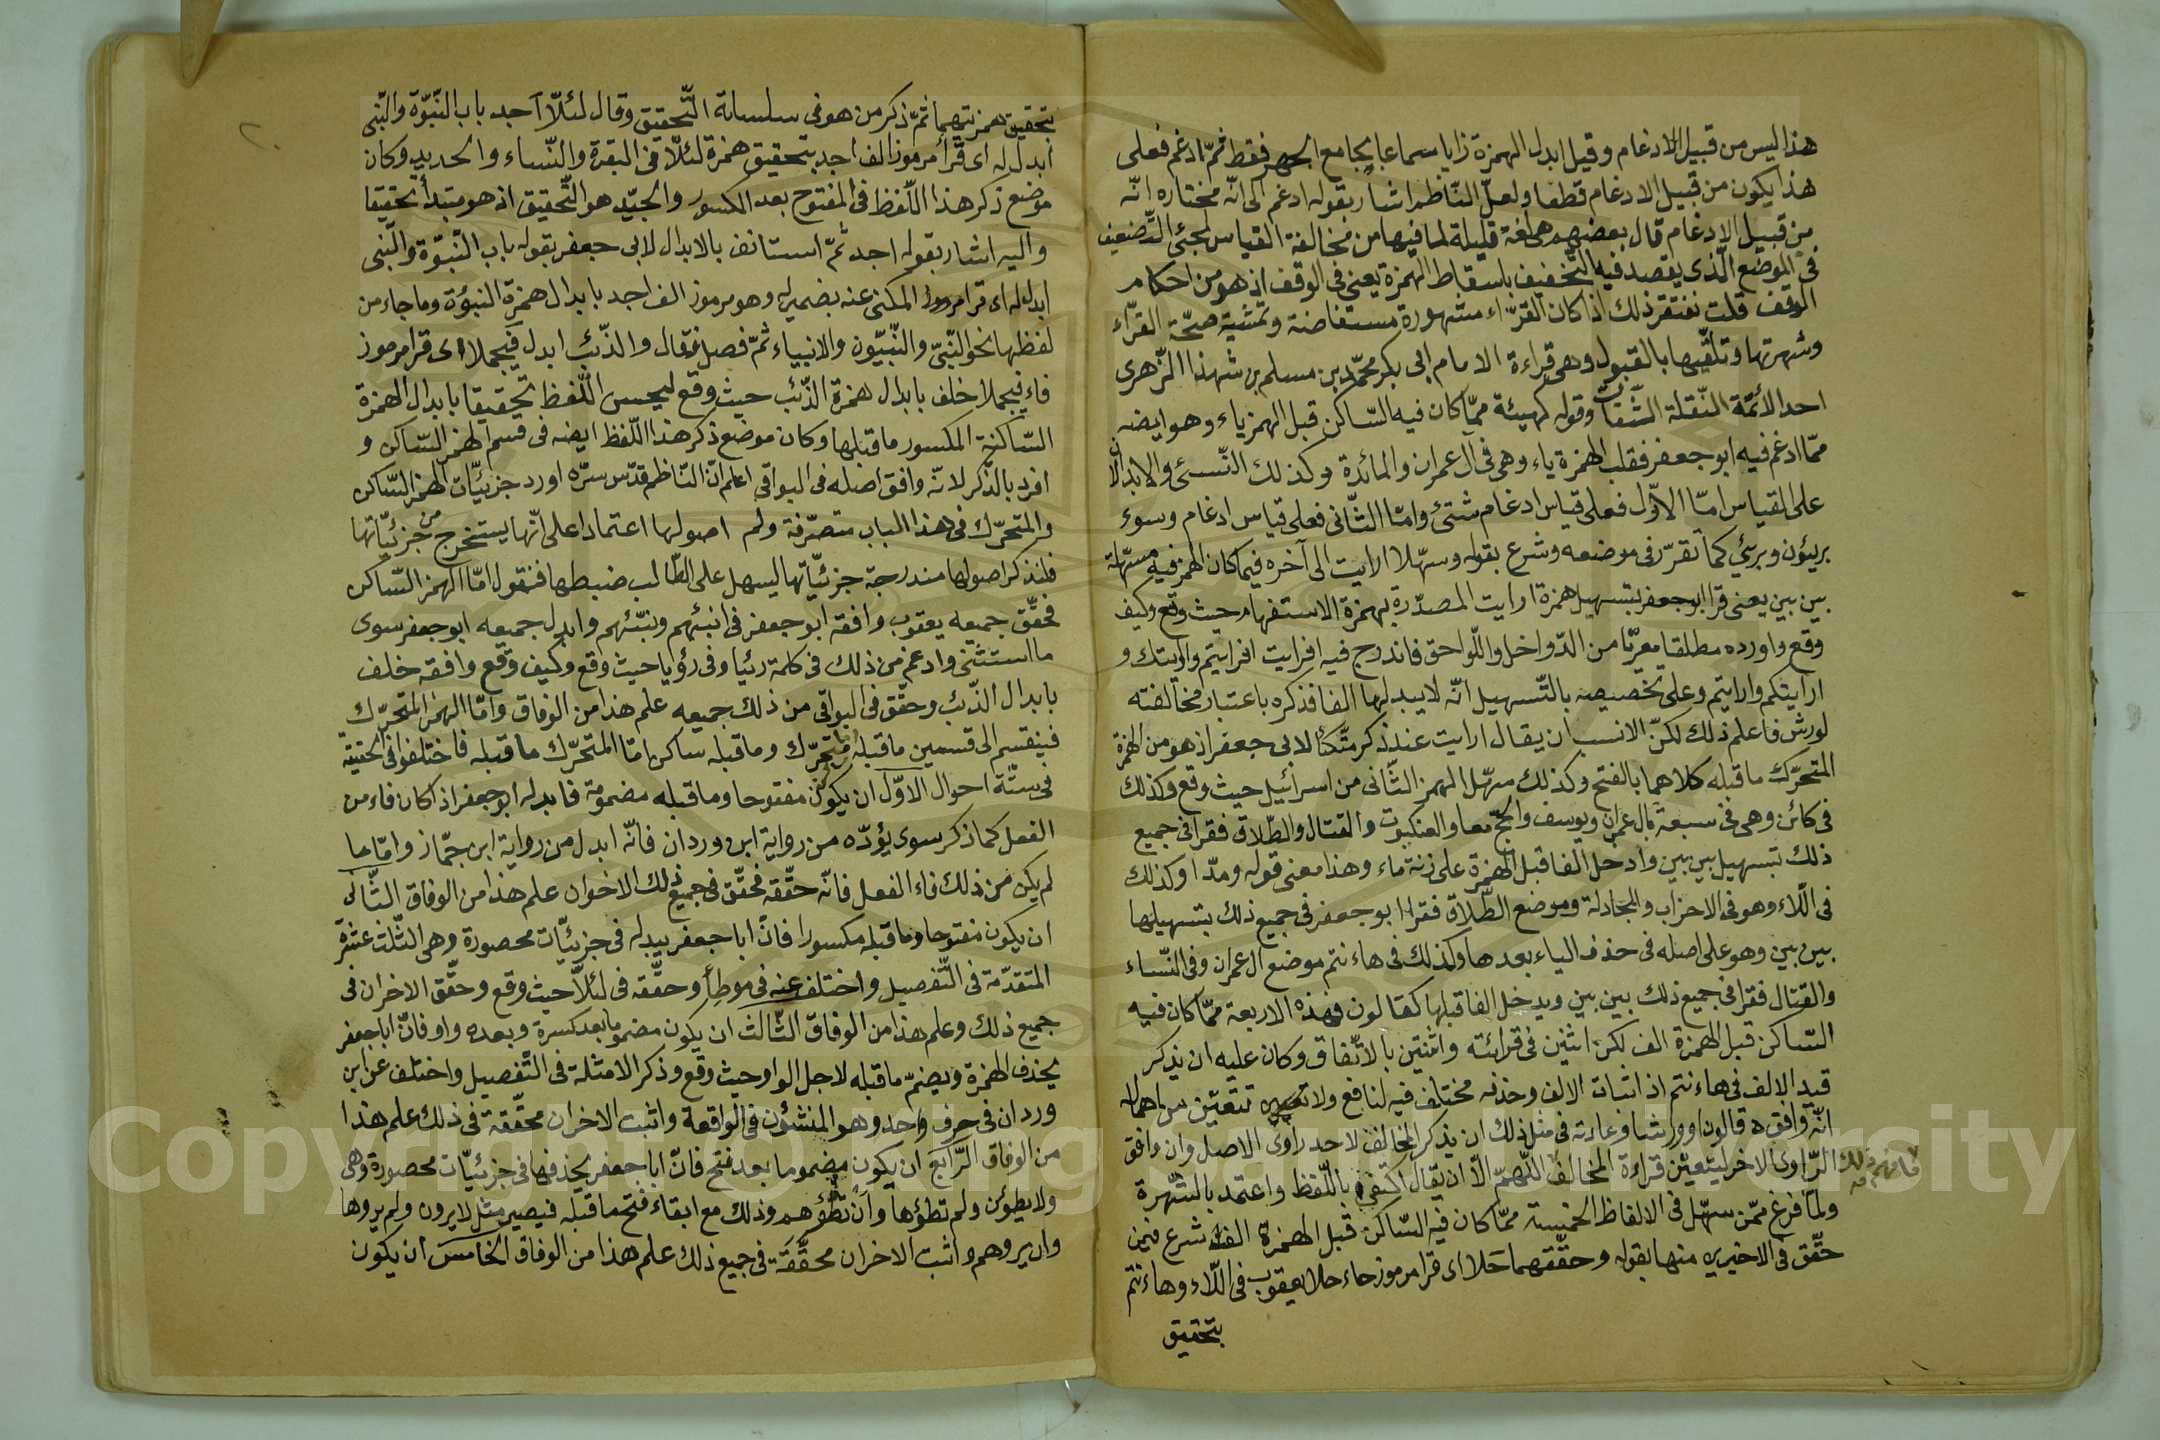 هذا ليس من قبيل الادغام وقيل ابدل الهمزة زايا سماعا بجامع الجهر فقط ثمّ ادغم فعلى
هذا يكون من قبيل الادغام قطعا ولعلّ النّاظم اشار بقوله ادغم الى انّه مختاره انّه
من قبيل الادغام قال بعضهم هى لغة قليلة لما فيها من مخالفة القياس لمجئ التّضعيف
فى الموضع الّذى يقصد فيه التّخفيف باسقاط الهمزة يعنى فى الوقف اذ هو من احكام
الوقف قلت نغتفر ذلك اذ كان القرّاء مشهورة مستفاضة وتمشية صحّة القرّاء
وشهرتها وتلقّيها بالقبول وهى قراءة الامام ابى بكر محمّد بن مسلم بن شهذا الزّهرى
احد الأئمّة النّقلة الثّقات وقوله كهيئة ممّا كان فيه السّاكن قبل الهمز ياء وهو ايضه
ممّا ادغم فيه ابو جعفر فقلب الهمزة ياء وهى فى آل عمران والمائدة وكذلك النّسئ والابدالان
على القياس امّا الاوّل فعلى قياس ادغام شئ وامّا الثّانى فعلى قياس ادغام وسوء
بريؤن وبرئ كما تقرّر فى موضعه وشرع بقوله وسهّلا ارايت الى آخره فيما كان الهمز فيه مسهّلة
بين بين يعنى قرا ابو جعفر بتسهيل همزة ارايت المصدّرة بهمزة الاستفهام حيث وقع وكيف
وقع واورده مطلقا معرّيا من الدّواخل واللّواحق فاندرج فيه افرايت افرايتم وارايتك و
ارايتكم وارايتم وعلى تخصيصه بالتّسهيل انّه لا يبدلها الفا فذكره باعتبار مخالفته
لورش فاعلم ذلك لكنّ الانسب ان يقال ارايت عند ذكر متّكأ لابى جعفر اذ هو من الهمزة
المتحرّك ما قبله كلاهما بالفتح وكذلك سهّل الهمز الثّانى من اسرائيل حيث وقع وكذلك
فى كائن وهى فى سبعة بال عمران ويوسف والحجّ معا والعنكبوت والقتال والطّلاق فقرا فى جميع
ذلك بتسهيل بين بين وادخل الفا قبل الهمزة على زنة ماء وهذا معنى قوله ومدّا وكذلك
فى اللّاء وهو فى الاحزاب والمجادلة وموضع الطّلاق فقرا ابو جعفر فى جميع ذلك بتسهيلها
بين بين وهو على اصله فى حذف الياء بعدها وكذلك فى هاءنتم موضع ال عمران وفى النّساء
والقتال فقرا فى جميع ذلك بين بين ويدخل الفا قبلها كقالون فهذه الاربعة ممّا كان فيه
السّاكن قبل الهمزة الف لكن اثنين فى قرائته واثنتين بالاتّفاق وكان عليه ان يذكر
قيد الالف فى هاءنتم اذ اثبات الالف وحذفه مختلف فيه لنافع ولا تتعيّن من اهماله
انّه وافق قالون او ورشا وعادته فى مثل ذلك ان يذكر المخالف لاحد راوى الاصل وان وافق
الرّاوى الاخر ليتعيّن قراءة المخالف اللّهمّ الّا ان يقال اكتفى باللّفظ واعتمد بالشّهرة
فافهم ذلك
ولمّا فرغ ممّن سهّل فى الالفاظ الخمسة ممّا كان فيه السّاكن قبل الهمزة الف شرع فيمن
حقّق فى الاخيرين منها بقوله وحقّقهما حلا اى قرا مرموز حاء حلا يعقوب فى اللّاء وهاءنتم
بتحقيق
بتحقيق همزتيهما ثمّ ذكر من هو فى سلسلة التّحقيق وقال لئلّا اجد باب النّبوّة والنّبى
ابدل له اى قرأ مرموز الف اجد بتحقيق همزة لئلّا فى البقرة والنّساء والحديد وكان
موضع ذكر هذا اللّفظ فى المفتوح بعد الكسور والجيّد هو التّحقيق اذ هو مبتدأ تحقيقا
واليه اشار بقوله اجد ثمّ استانف بالابدال لابى جعفر بقوله باب النّبوّة والنّبى
ابدل له اى قرا مرموز المكنى عنه بضمير له وهو مرموز الف اجد بابدال همزة النبؤة وما جاء من
لفظها نحو النّبىّ والنّبيّون والانبياء ثمّ فصل فقال والذّئب ابدل فيجملا اى قرا مرموز
فاء فيجملا خلف بابدال همزة الذّئب حيث وقع ليحسن اللّفظ تحقيقا بابدال الهمزة
السّاكنة المكسور ما قبلها وكان موضع ذكر هذا اللّفظ ايضه فى قسم الهمز السّاكن و
افرد بالذّكر لانّه وافق اصله فى البواقى اعلم انّ النّاظم قدّس سرّه اورد جزئيّات الهمز السّاكن
والمتحرّك فى هذا الباب متصرّفة ولم اصولها اعتمادا على انّها يستخرج من جزئيّاتها
فلنذكر اصولها مندرجة جزئيّاتها ليسهل على الطّالب ضبطها فنقول امّا الهمز السّاكن
فحقّق جميعه يعقوب وافقه ابو جعفر فى انبئهم ونبّئهم وابدل جميعه ابو جعفر سوى
ما استثنى وادغم من ذلك فى كلمة رئيا وفى رؤيا حيث وقع وكيف وقع وافقه خلف
بابدال الذّئب وحقّق فى البواقى من ذلك جميعه علم هذا من الوفاق وامّا الهمز المتحرّك
فينقسم الى قسمين ما قبله متحرّك وما قبله ساكن امّا المتحرّك ما قبله فاختلفوا فى تحقيقه
فى ستّة احوال الاوّل ان يكون مفتوحا وما قبله مضمومة فابدله ابو جعفر اذا كان فاء من
الفعل كما ذكر سوى يؤدّه من رواية ابن وردان فانّه ابدل من رواية ابن جمّاز وامّا ما
لم يكن من ذلك فاء الفعل فانّه حقّقه محقّق فى جميع ذلك الاخوان علم هذا من الوفاق الثّانى
ان يكون مفتوحا وما قبله مكسورا فانّ ابا جعفر يبدله فى جزئيّات محصورة وهى الثّلث عشرة
المتقدّمة فى التّفصيل واختلف عنه فى موطأ وحقّقه فى لئلّا حيث وقع وحقّق الاخران فى
جميع ذلك وعلم هذا من الوفاق الثّالث ان يكون مضموما بعد كسرة وبعده واو فانّ ابا جعفر
يحذف الهمزة ويضمّ ما قبله لاجل الواو حيث وقع وذكر الامثلة فى التّفصيل واختلف عن ابن
وردان فى حرف واحد وهو المنشئون فى الواقعة واثبت الاخران محقّقة فى ذلك علم هذا
من الوفاق الرّابع ان يكون مضموما بعد فتح فانّ ابا جعفر يحذفها فى جزئيّات محصورة وهى
ولا يطؤن ولم تطؤها وان تطؤهم وذلك مع ابقاء فتح ما قبله فيصير مثل لا يرون ولم يروها
وان يروهم واثبت الاخران محقّقة فى جميع ذلك علم هذا من الوفاق الخامس ان يكون
Copyright © King Saud University